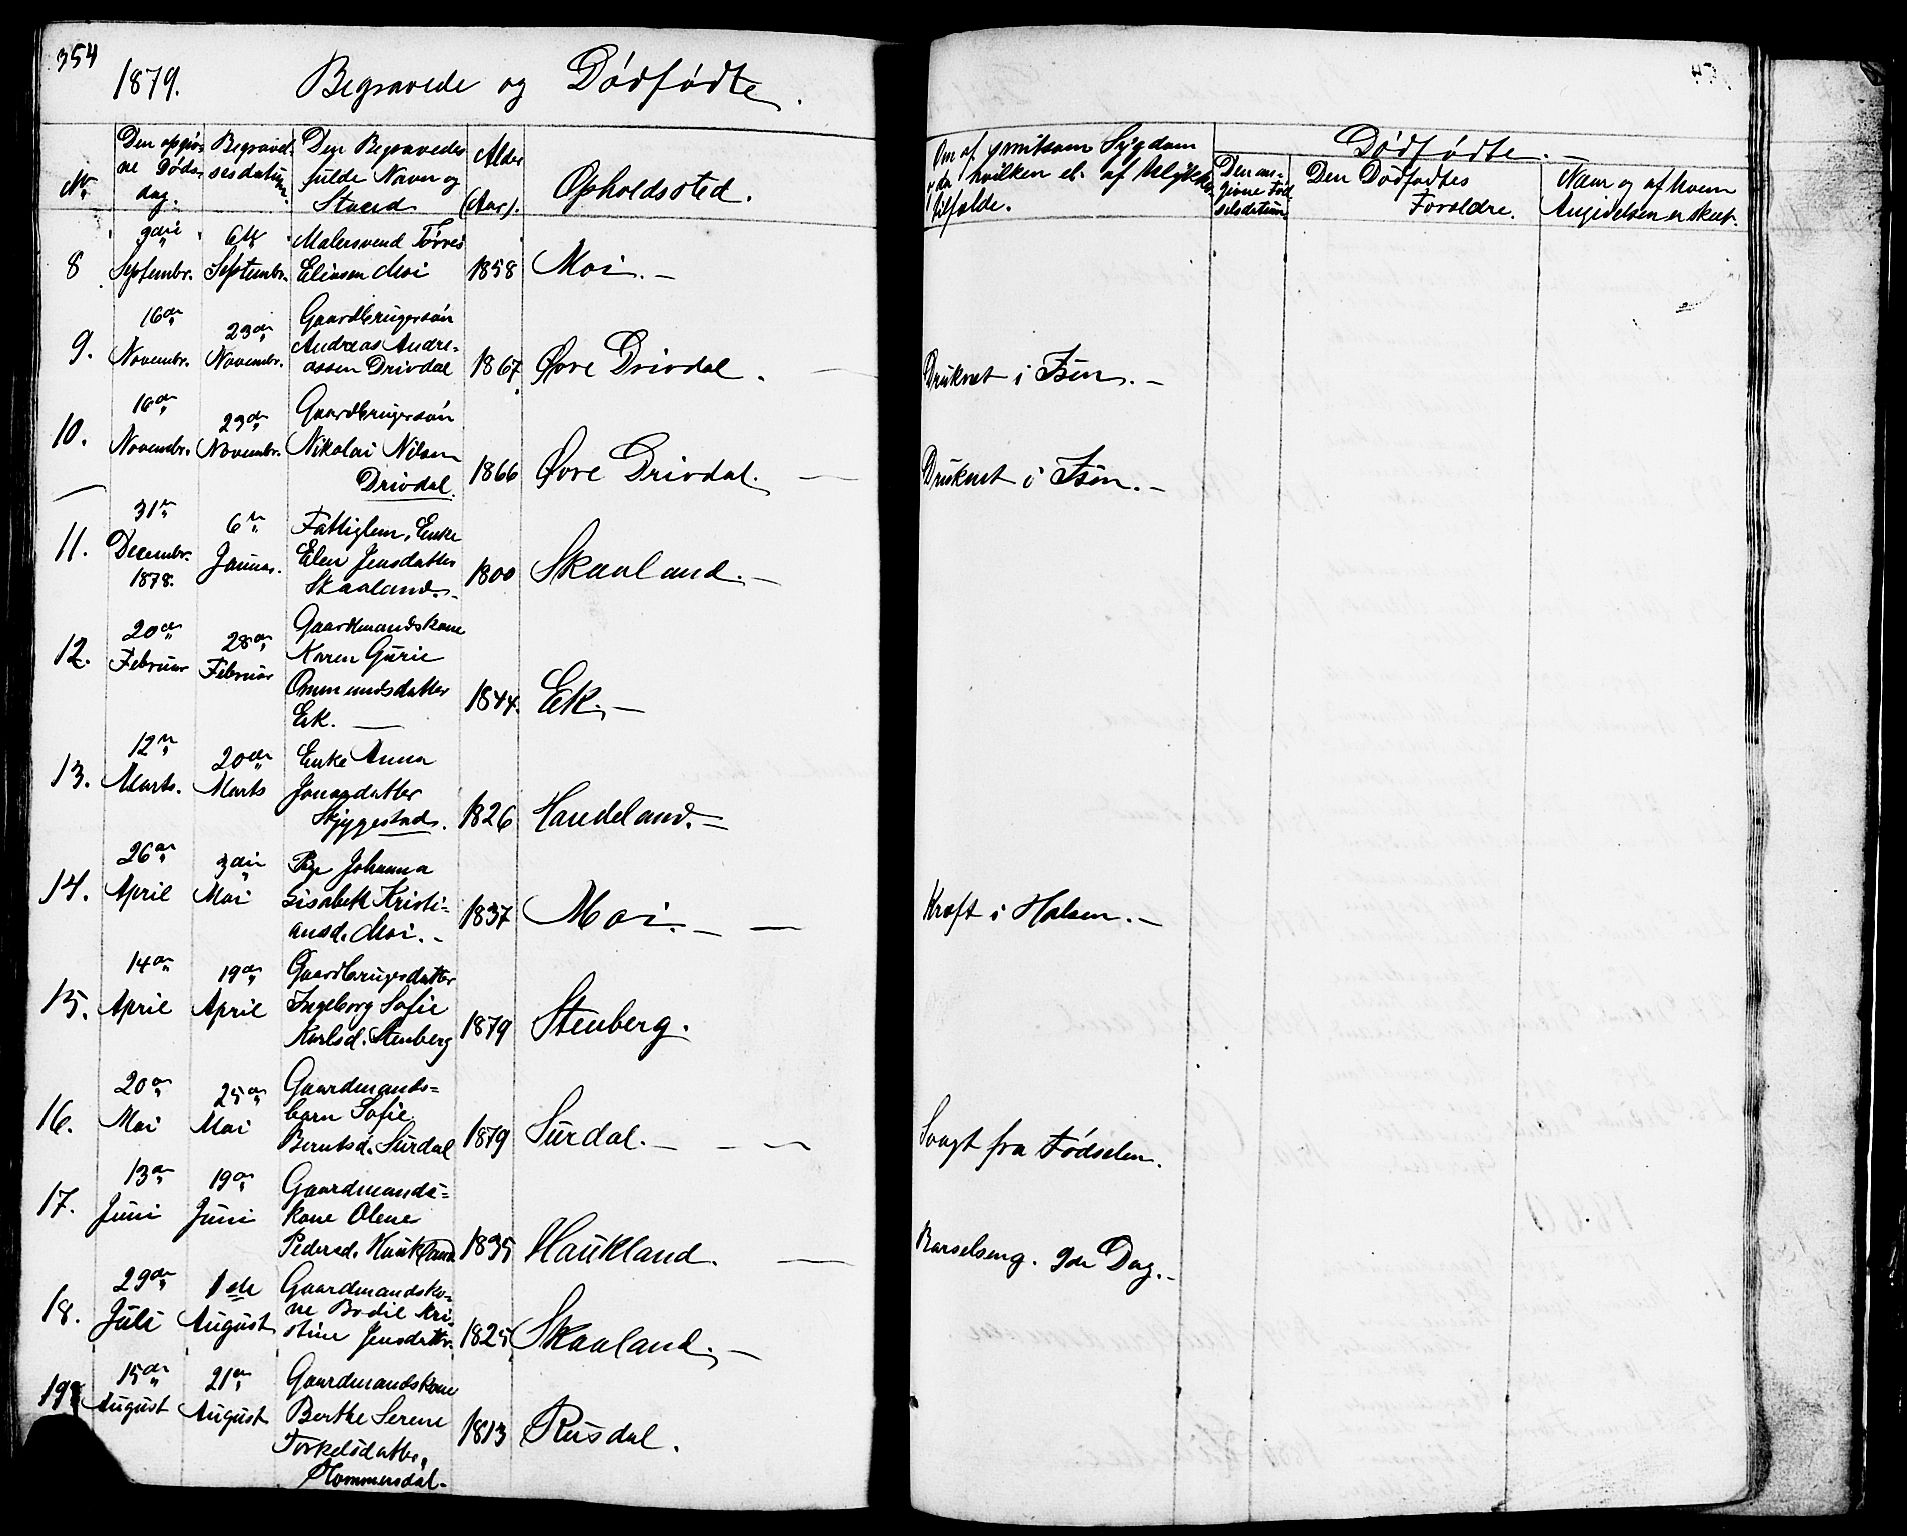 354
1879. Begravede og Dødfødte.
No. Den opgivne Dødsdag. Begravelsesdatum. Den Begravedes fulde Navn og Stand Alder (Aar). Opholdssted.
Om af smitsom Sygdom da hvilken el. af Ulykkestilfælde.
Dødfødte.
Den angivne Fødselsdatum Den Dødfødtes Forældre. Naar og af hvem Angivelsen er skeet.
8 September. September. Malersvend Tørres
Eliasen Moi 1858 Moi.
9. 16de November. 23de November. Gaardbrugersøn
Andreas Andre-
assen Drivdal 1867 Øvre Drivdal. Druknet i Isen.
10. 16de November. 23de November. Gaardbrugersøn
Nikolai Nilsen
Drivdal. 1866 Øvre Drivdal. Druknet i Isen.
11. 31te Decembr. 1878. 6te Januar. Fattiglem, Enke
Elen Jensdatter
Skaaland. 1800 Skaaland.
12. 20de Februar 28de Februar Gaardmandskone
Karen Gurie
Ommundsdatter
Eik. 1844. Eik.
13. 12te Marts. 20de Marts Enke Anna
Jonasdatter
Skyggestad. 1826 Haudeland.
14. 26de April 3die Mai Pige Johanna
Lisabeth Kristi-
ansd. Moi. 1837 Moi. Kræft i Halsen.
15. 14de April 19de April Gaardbrugerdatter
Ingeborg Sofie
Karlsd. Stenberg 1879 Stenberg.
16. 20de Mai 25de Mai Gaardmands-
barn Sofie
Berntsd. Surdal 1879 Surdal. Svagt fra Fødselen.
17. 13de Juni 19de Juni Gaardmands-
kone Olene
Pedersd. Haukland 1835 Haukland. Barselseng. 9de Dag.
18. 29de Juli 1ste August Gaardmandsko-
ne Bodil Kri-
stine Jensdatter. 1825 Skaaland.
19. 15de August 21de August Gaardmandskone
Berthe Serene
Torkelsdatter
Hommersdal. 1813 Rusdal.